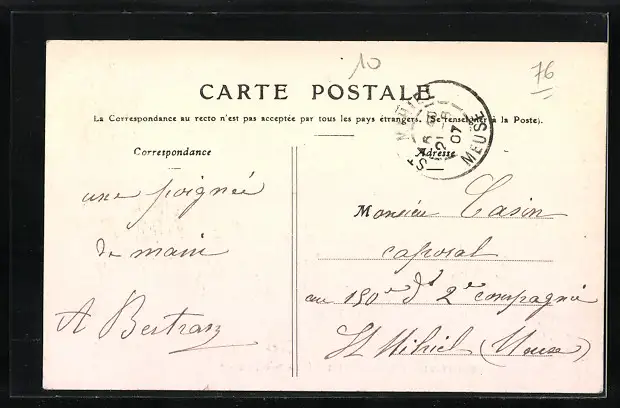 10
76
CARTE POSTALE
La Correspondance au recto n'est pas acceptée par tous les pays étrangers. (Se renseigner à la Poste).
ST MIHIEL
21
07
MEUSE
Correspondance
Adresse
une poignée
de main
A Bertran
Monsieur Casin
caporal
au 150e d'I 2e compagnie
St Mihiel (Meuse)